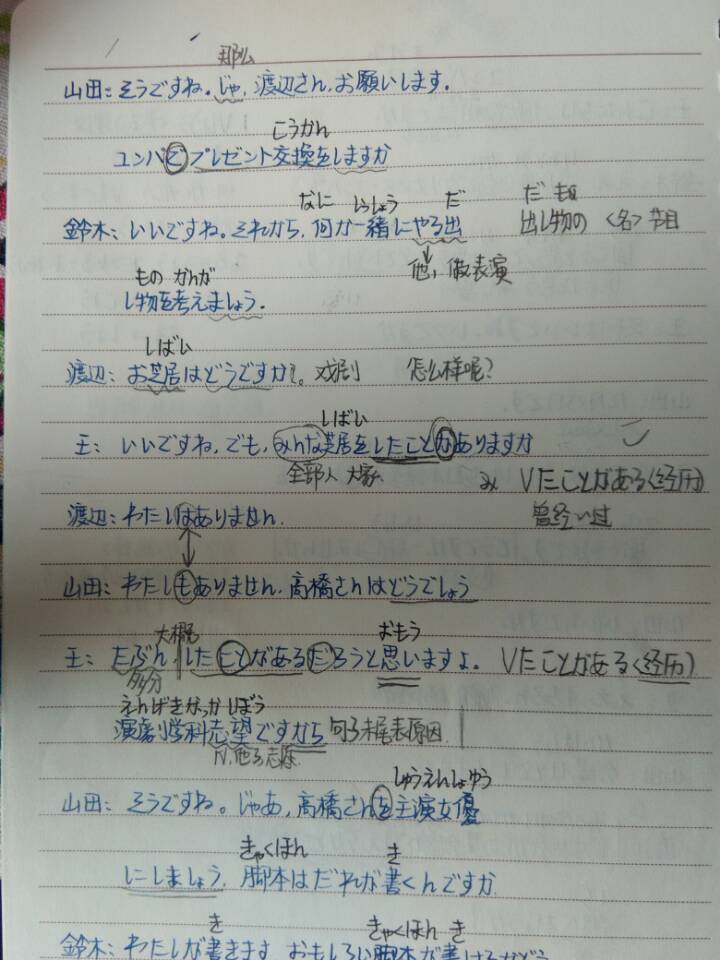 那么
山田：そうですね。じゃ，渡辺さん，お願いします。
こうかん
コンパでプレゼント交換をしますか
なに いっしょう だ だ もの
鈴木：いいですね。それから，何か一緒にやる出 出し物の <名>节目
もの かんが 他，做表演
し物を考えましょう．
しばい
渡辺：お芝居はどうですか。戏剧 怎么样呢？
しばい
王：いいですね，でも，みんな芝居をしたことがありますか
全部人 大家 Vたことがある<经历>
渡辺：わたしはありません． 曾经
山田：わたしもありません．高橋さんはどうでしょう
大概 おもう
王：たぶんしたことがあるだろうと思いますよ。Vたことがある<经历>
多分
えんげきがっか しぼう
演劇学科志望ですから 句子末尾表原因
しゅうえんしょゆう
山田：そうですね。じゃあ，高橋さんを主演女優
きゃくほん き
にしましょう．脚本はだれが書くんですか
き きゃくほん き
鈴木：わたしが書きます おもしろい脚本が書けるかどう